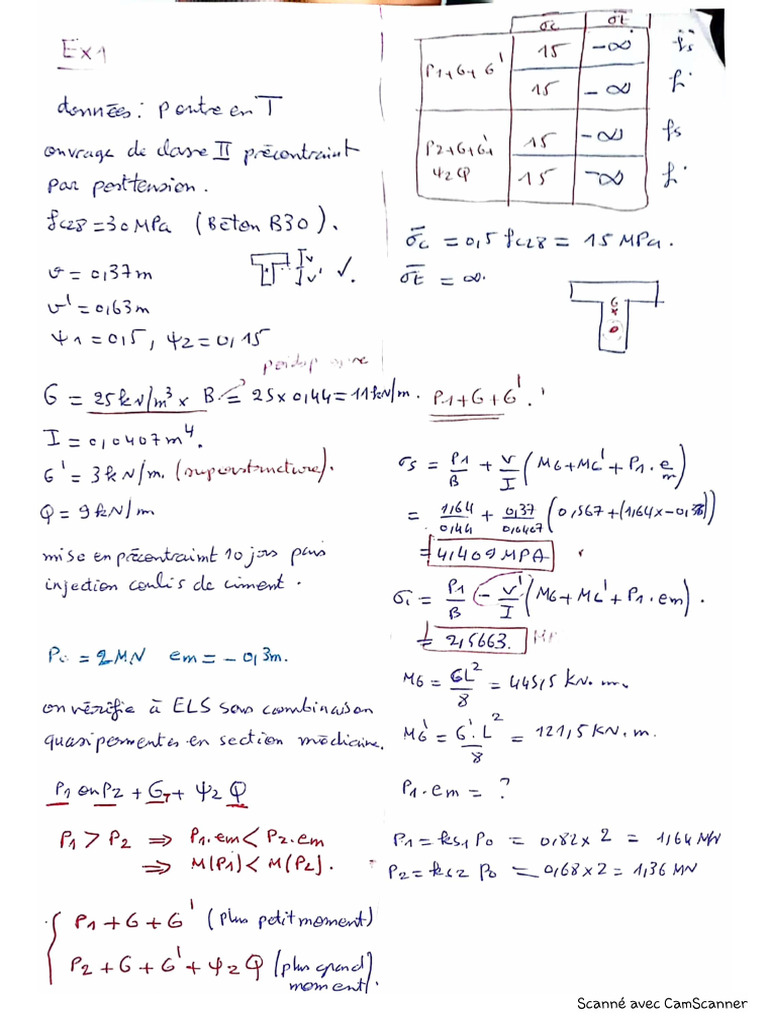 Ex1
données: poutre en T
ouvrage de classe II précontraint
par posttension.
fc28 = 30 MPa (Béton B30).
v = 0,37m
v' = 0,63m
Ψ1 = 0,5, Ψ2 = 0,15
G = 25kN/m³ x B = 25 x 0,44 = 11kN/m.
I = 0,0407m⁴.
G' = 3kN/m. (superstructure).
Q = 9kN/m
mise en précontraint 10 jours puis
injection coulis de ciment.
P0 = 2MN em = - 0,3m.
on vérifie à ELS sous combinaison
quasipermentes en section médiane.
P1 ou P2 + GT + Ψ2 Q
P1 > P2 ⇒ P1.em < P2.em
⇒ M(P1) < M(P2).
P1 + G + G' (plus petit moment)
P2 + G + G' + Ψ2 Q (plus grand
moment).
σc σt
P1+G+G' 15 -∞ fs
15 -∞ fi
P2+G+G'+ 15 -∞ fs
Ψ2 Q 15 -∞ fi
σc = 0,5 fc28 = 15 MPa.
σt = ∞.
G
P1+G+G'.
σs = P1/B + V/I (MG + MG' + P1.em)
= 1,64/0,44 + 0,37/0,0407 (0,567 + (1,64x-0,3))
= 4,409 MPA
σi = P1/B - V'/I (MG + MG' + P1.em).
= 2,5663.
MG = GL²/8 = 445,5 kN.m.
MG' = G'.L²/8 = 121,5 KN.m.
P1.em = ?
P1 = ks1 P0 = 0,82 x 2 = 1,64 MN
P2 = ks2 P0 = 0,68 x 2 = 1,36 MN
Scanné avec CamScanner